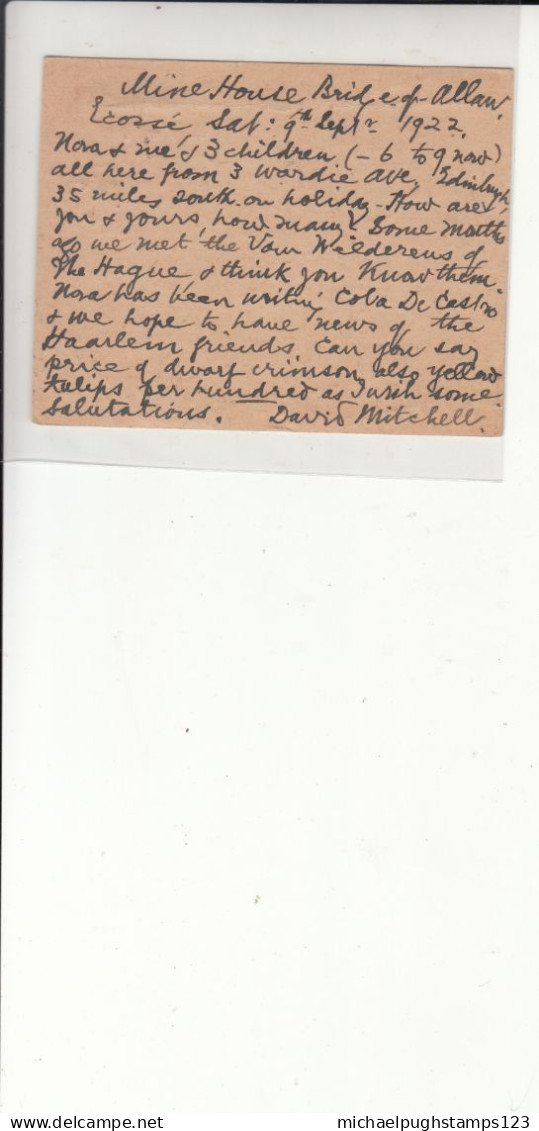 Mine House Bridge of Allan,
Ecosse, Sat: 9th Septr 1922.
Nora & me & 3 children (-6 to 9 now)
all here from 3 Wardie Ave, Edinburgh,
35 miles south on holiday - How are
you & yours, how many? Some months
ago we met the Van Wilderens of
The Hague & think you know them.
Nora has been writing Coba De Castro
& we hope to have news of the
Haarlem friends. Can you say
price of dwarf crimson, also yellow
tulips per hundred as I wish some.
Salutations. David Mitchell.
michaelpughstamps123